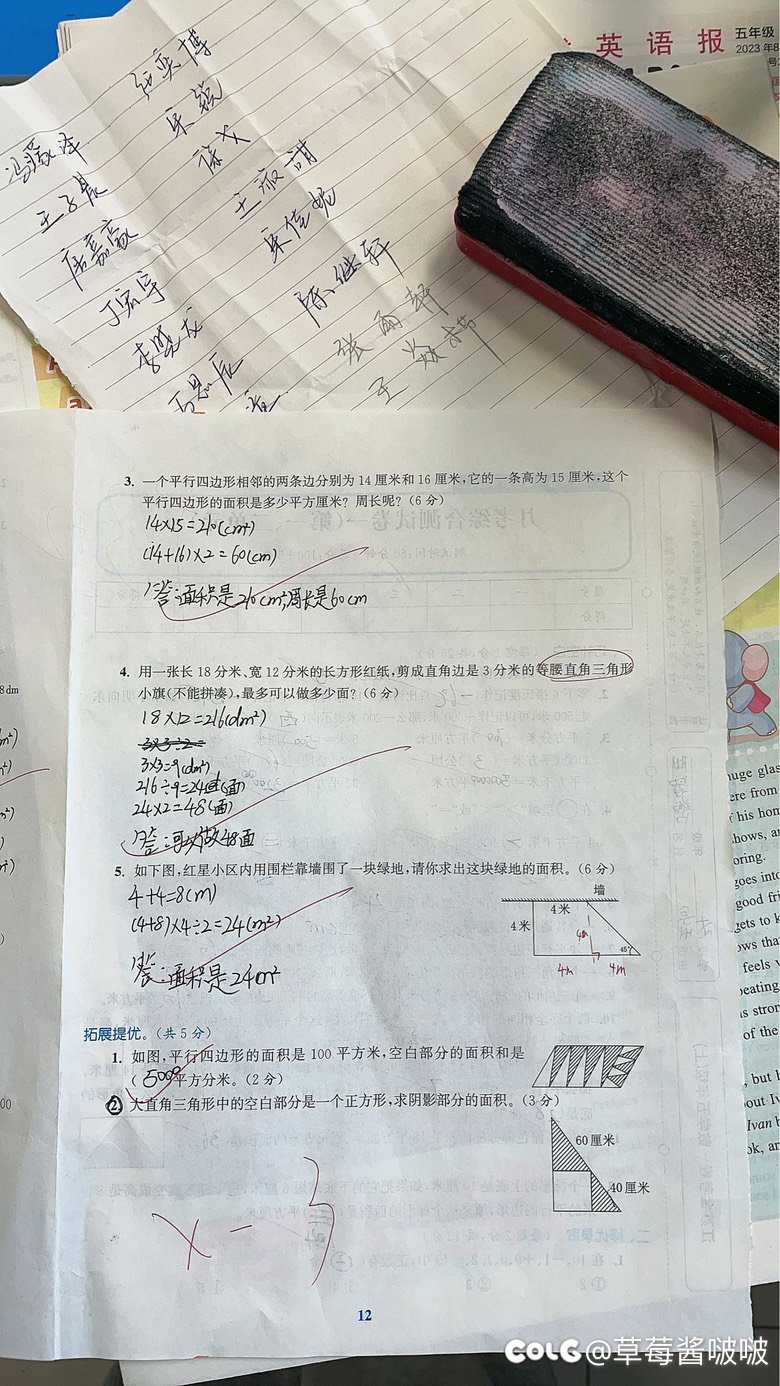 英语报
五年级
2023年8
王子晨
唐嘉豪
丁宏宇
徐义
王淑甜
宋佳妮
陈继轩
张雨轩
3. 一个平行四边形相邻的两条边分别为14厘米和16厘米,它的一条高为15厘米,这个
平行四边形的面积是多少平方厘米? 周长呢? (6分)
14×15=210(cm²)
(14+16)×2=60(cm)
答:面积是210cm²,周长是60cm
4. 用一张长18分米、宽12分米的长方形红纸,剪成直角边是3分米的等腰直角三角形
小旗(不能拼凑),最多可以做多少面? (6分)
8dm
18×12=216(dm²)
3×3÷2=
3×3=9(dm²)
216÷9=24(面)
24×2=48(面)
答:可以做48面
5. 如下图,红星小区内用围栏靠墙围了一块绿地,请你求出这块绿地的面积。(6分)
4+4=8(m)
(4+8)×4÷2=24(m²)
答:面积是24m²
墙
4米
4米
4m
45°
4m
4m
拓展提优。(共5分)
1. 如图,平行四边形的面积是100平方米,空白部分的面积和是
(5000平方分米。(2分)
2. 大直角三角形中的空白部分是一个正方形,求阴影部分的面积。(3分)
60厘米
40厘米
×-3
12
huge glas
ere from
f his hom
shows, a
oring.
goes into
good fri
gets to k
ows tha
feels v
beating
is stron
of the
, but h
out Iv
Ivan b
ok, an
COLG @草莓酱啵啵